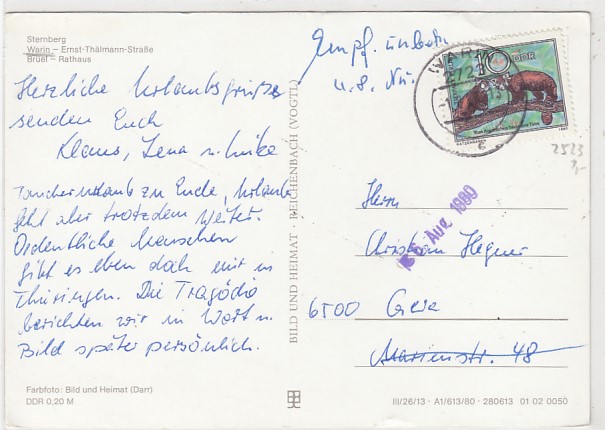 Sternberg
Warin – Ernst-Thälmann-Straße
Brüel – Rathaus
Herzliche Urlaubsgrüße
senden Euch
Klaus, Lena u. Imke
Taucherurlaub zu Ende, Urlaub
geht aber trotzdem weiter.
Ordentliche Menschen
gibt es eben doch nur in
Thüringen. Die Tragödie
berichten wir in Wort u.
Bild später persönlich.
Farbfoto: Bild und Heimat (Darr)
DDR 0,20 M
BILD UND HEIMAT · REICHENBACH (VOGTL)
Empf. unbek.
u. g. Nr.
WARIN
272
10 DDR
1980
2523
Herrn
Christian Hegner
6500 Gera
Marienstr. 48
AUG 1980
III/26/13 · A1/613/80 · 280613 01 02 0050